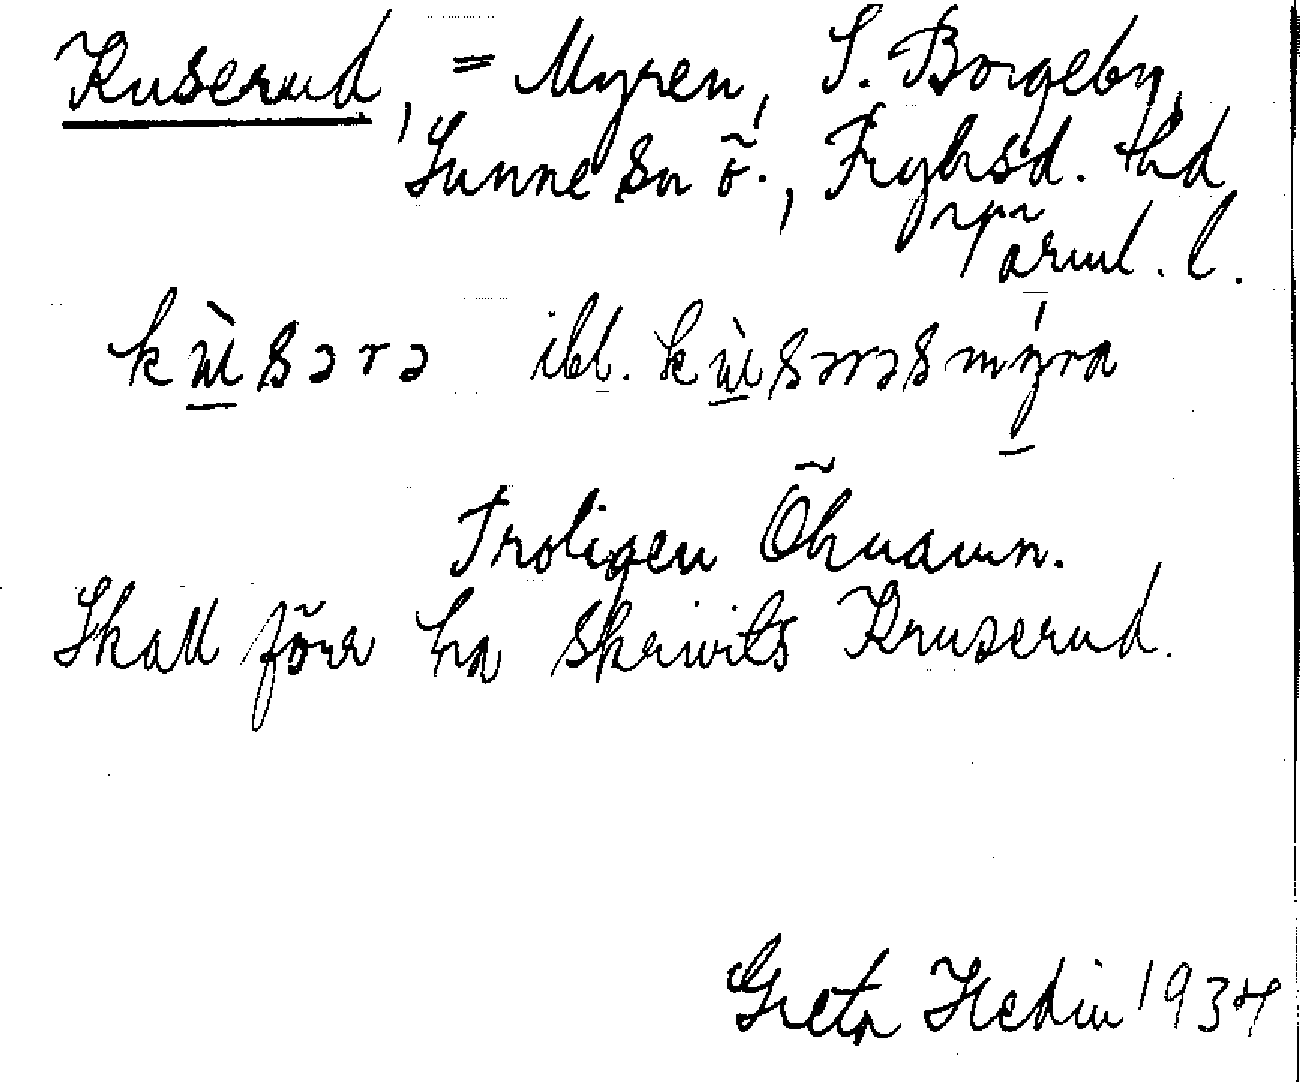 Kuserud, = Myren, S. Borgeby,
Sunne sn ö., Fryksd. hd
Värml. l.
kɯ̀sərə ibl. kɯ̀sərəsmýra
Troligen Öknamn.
Skall förr ha skrivits Kruserud.
Greta Hedin 1934